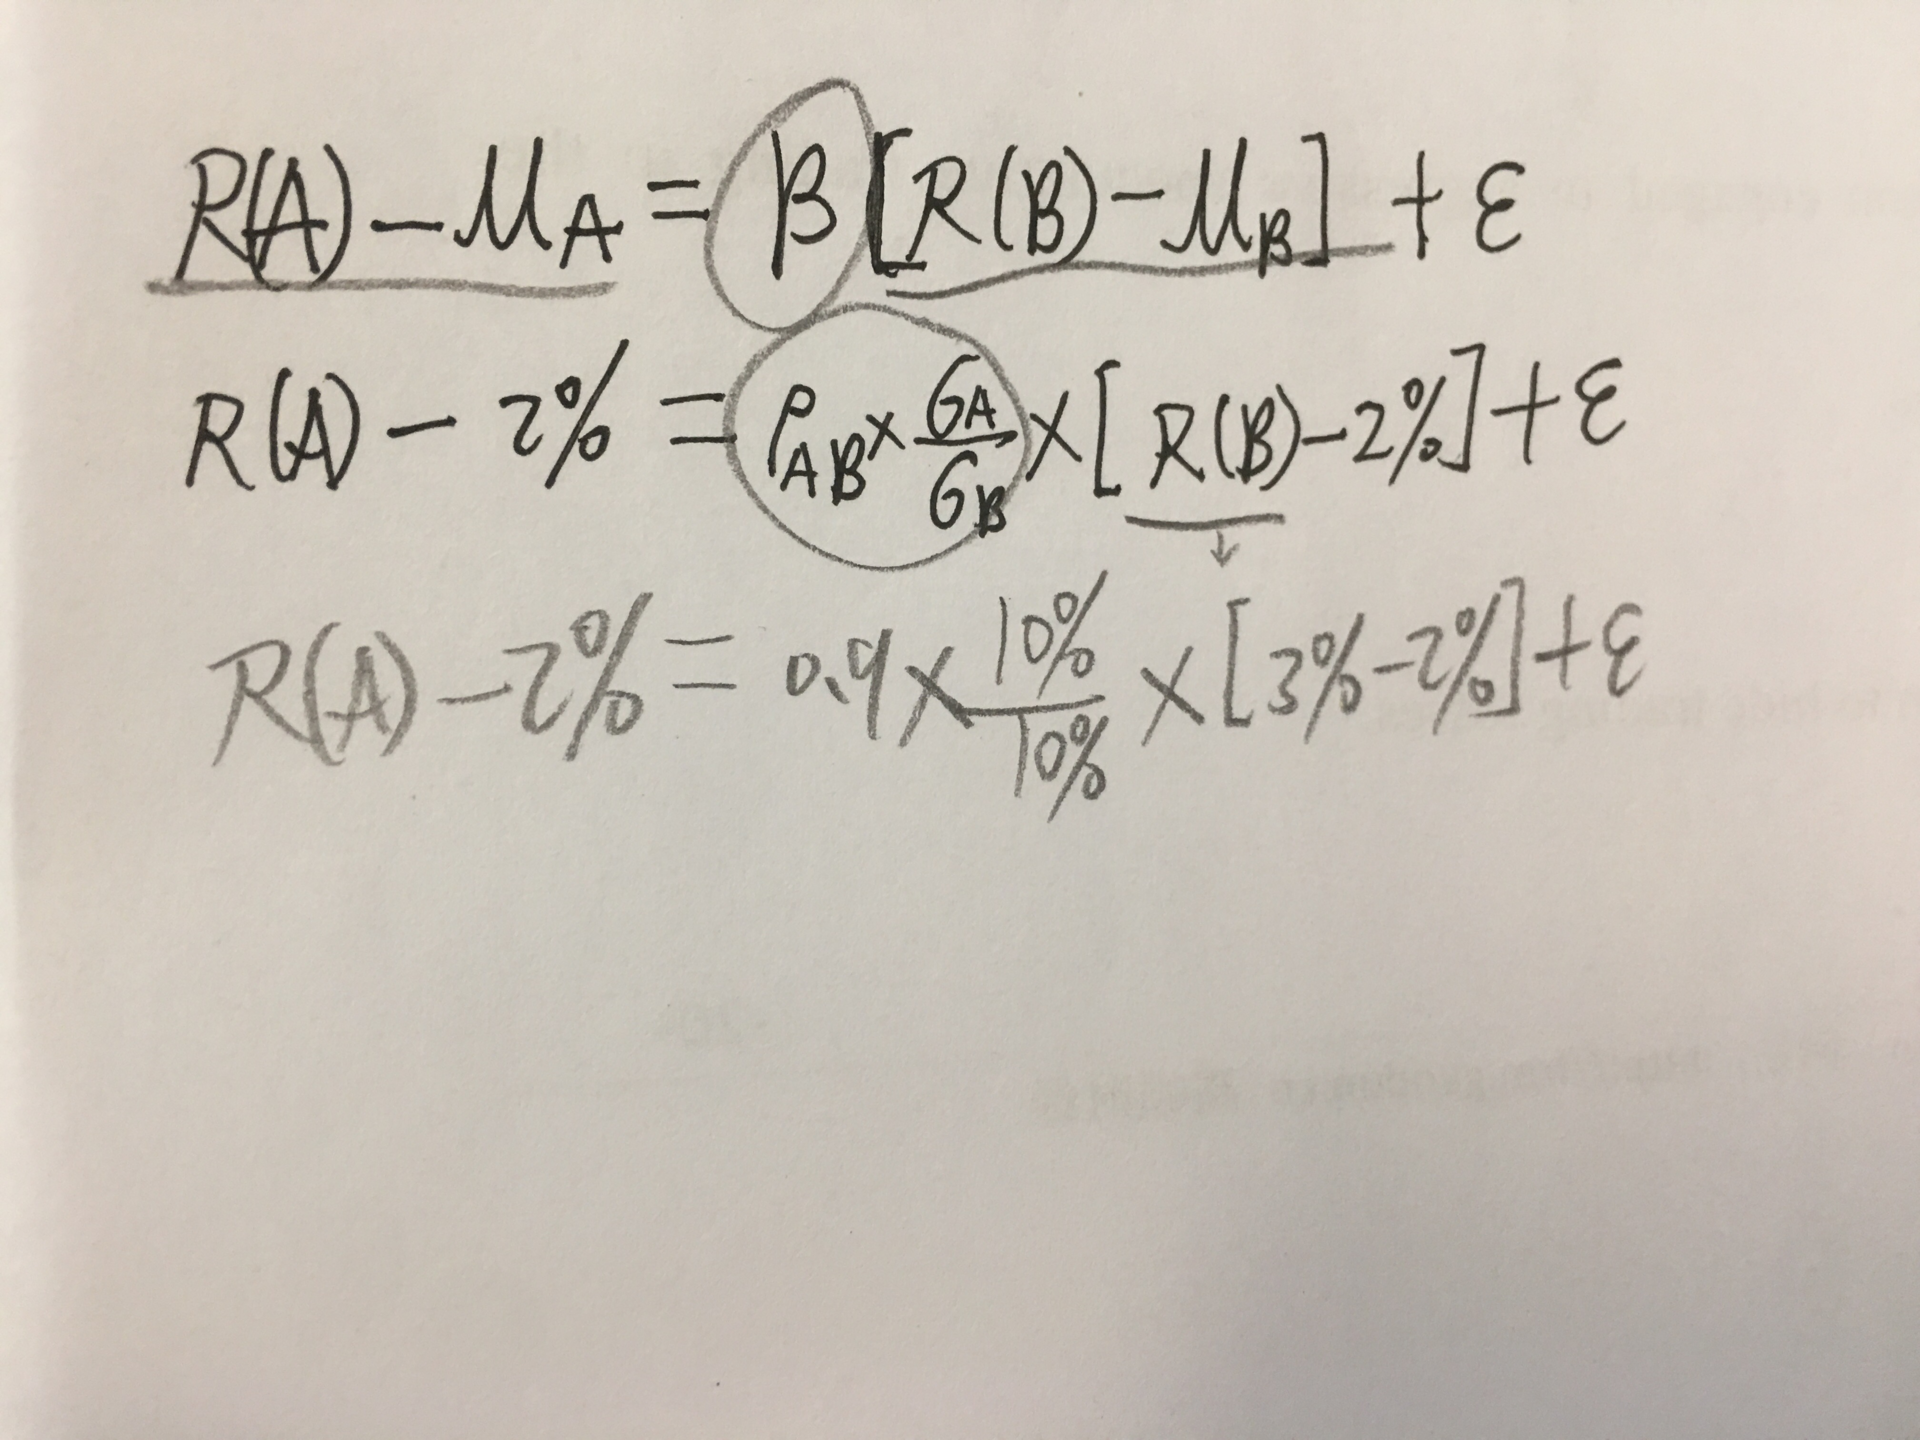 R(A) - μA = β [R(B) - μB] + ε
R(A) - 2% = ρAB × σA/σB × [R(B) - 2%] + ε
↓
R(A) - 2% = 0.9 × 10%/10% × [3% - 2%] + ε